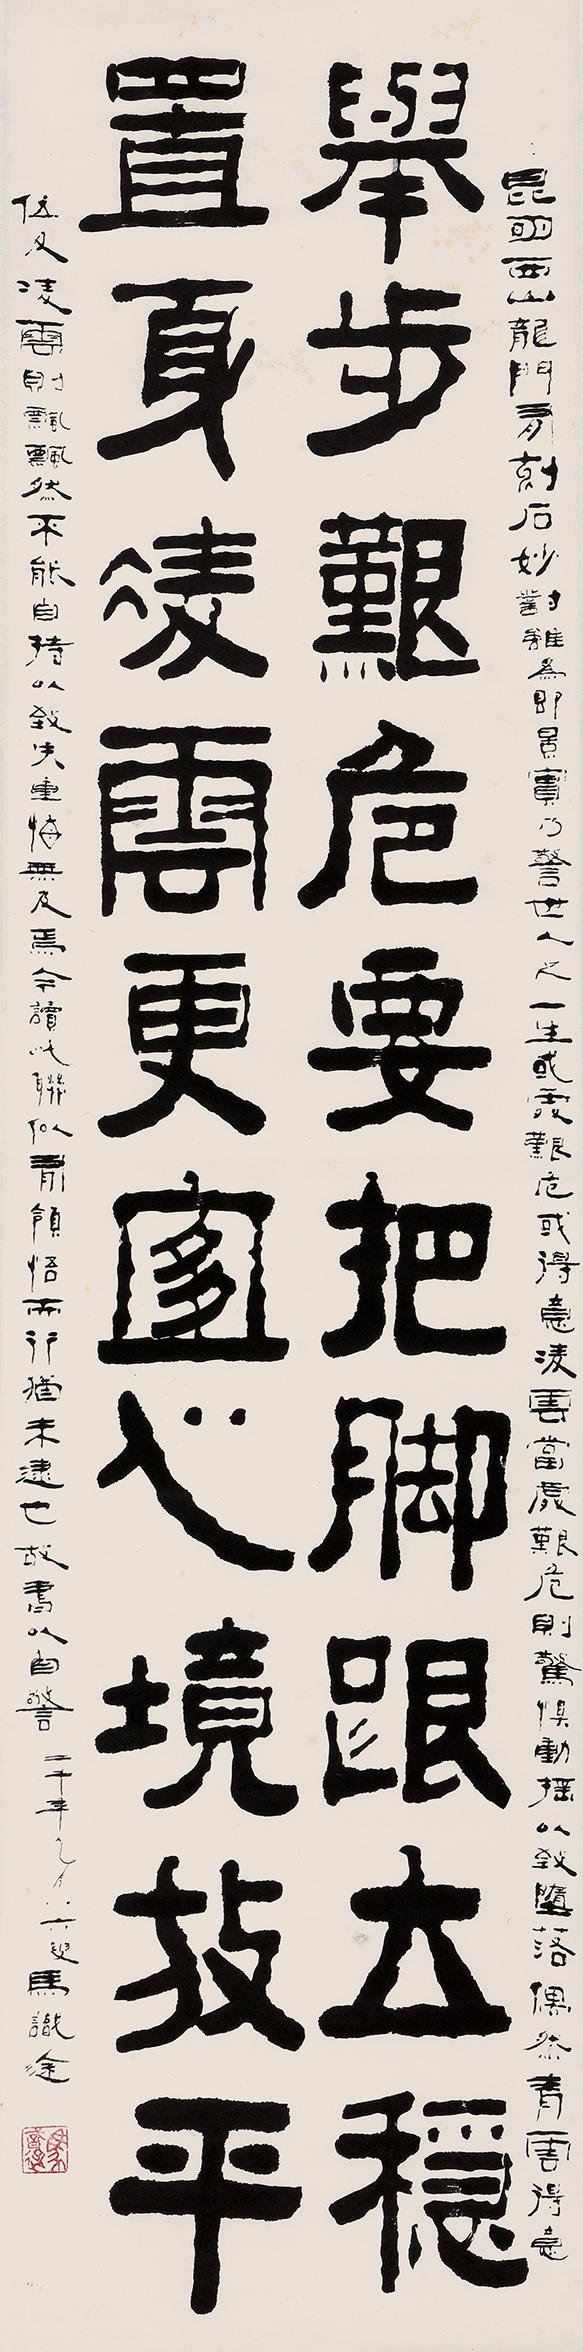 昆明西山龍門有刻石妙對雖為即景實乃警世人之一生或處艱危或得意凌雲當處艱危則驚惧動搖以致墮落偶然青雲得意
舉步艱危要把脚跟立穩
置身凌雲更宜心境放平
位及凌雲則飄飄然不能自持以致失重悔無及焉今讀此聯似有領悟而行猶未逮也故書以自警 二千年九月八六叟馬識途